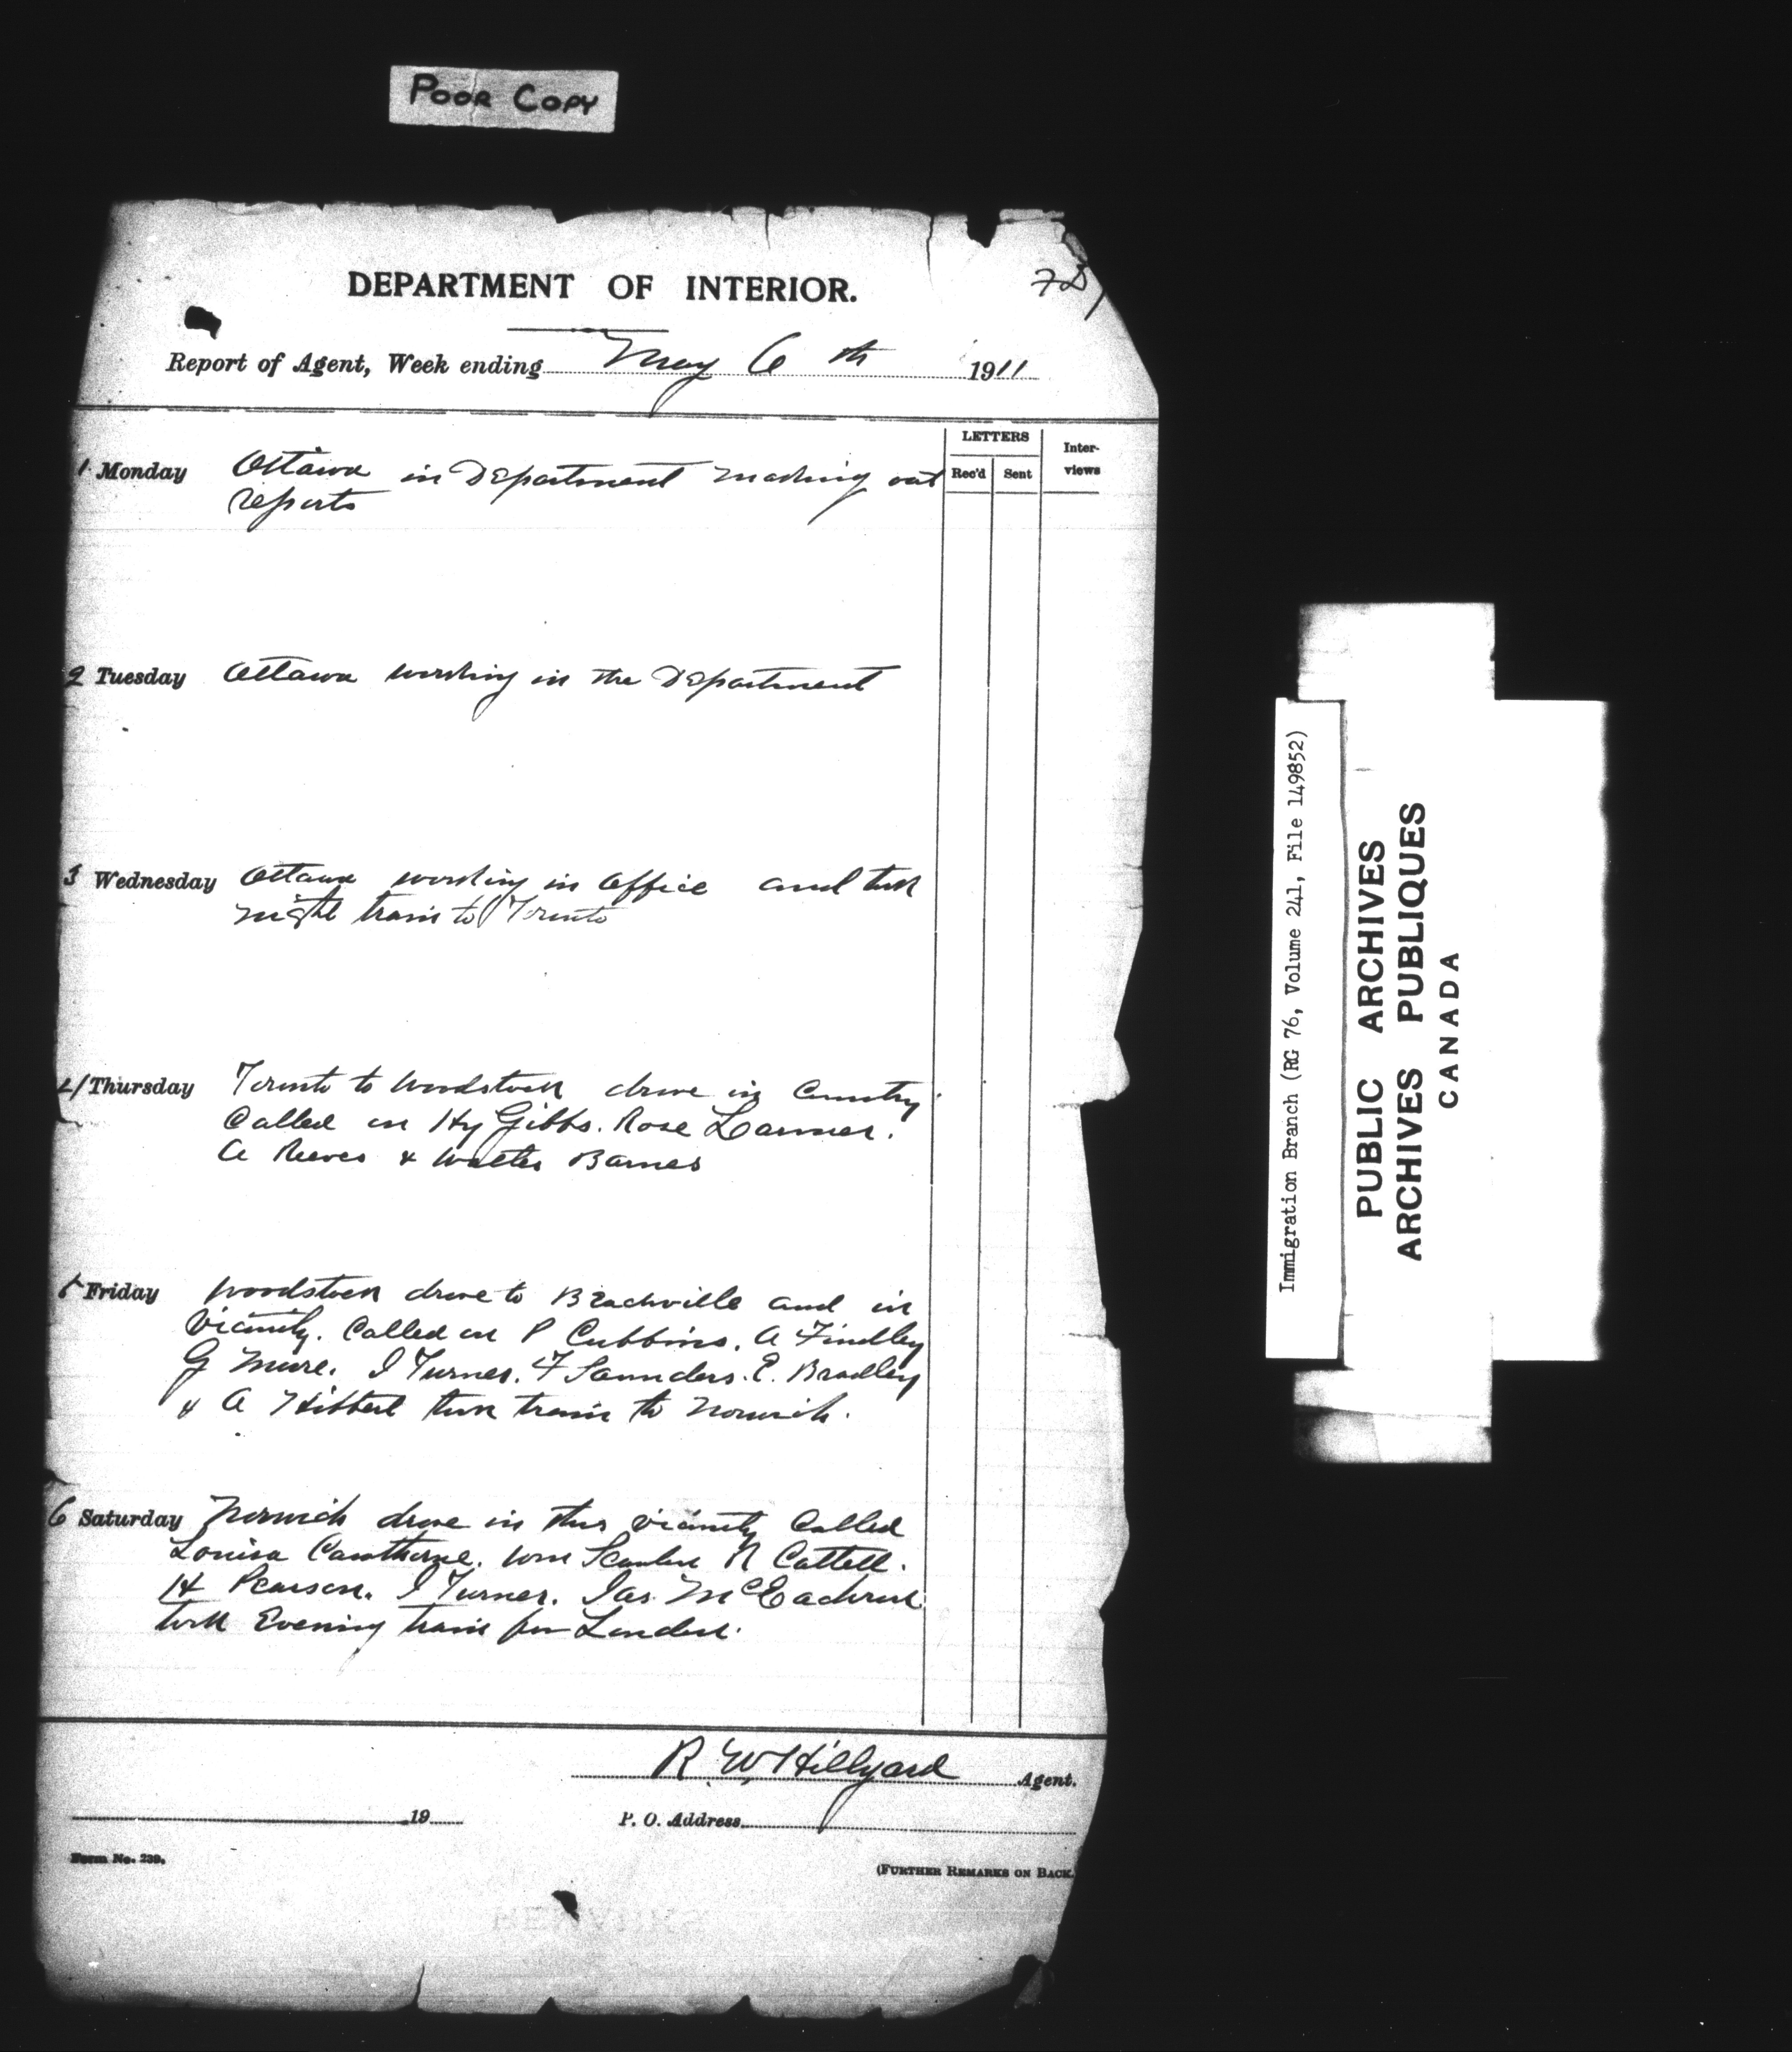 POOR COPY
DEPARTMENT OF INTERIOR.
Report of Agent, Week ending May 6 th 1911
LETTERS
Inter-
views
Rec'd Sent
1 Monday Ottawa in Department making out
reports
2 Tuesday Ottawa working in the Department
3 Wednesday Ottawa working in Office and took
night train to Toronto
4 Thursday Toronto to Woodstock drove in Country
Called on Hy Gibbs. Rose Larmer.
A Reeves & Walter Barnes
5 Friday Woodstock drove to Beachville and in
vicinity. Called on P Cubbins. A Findley
G Mure. J Turner. F Saunders. E. Bradley
& A Hibbert took train to Norwich.
6 Saturday Norwich drove in this vicinity Called
Louisa Cawthorne. Wm Scanlon R Cattell.
H Pearson. J Turner. Jas. McEachren
took Evening train for London.
R. W. Hillyard Agent.
19
P. O. Address
Form No. 239.
(FURTHER REMARKS ON BACK.
Immigration Branch (RG 76, Volume 241, File 149852)
PUBLIC ARCHIVES
ARCHIVES PUBLIQUES
CANADA